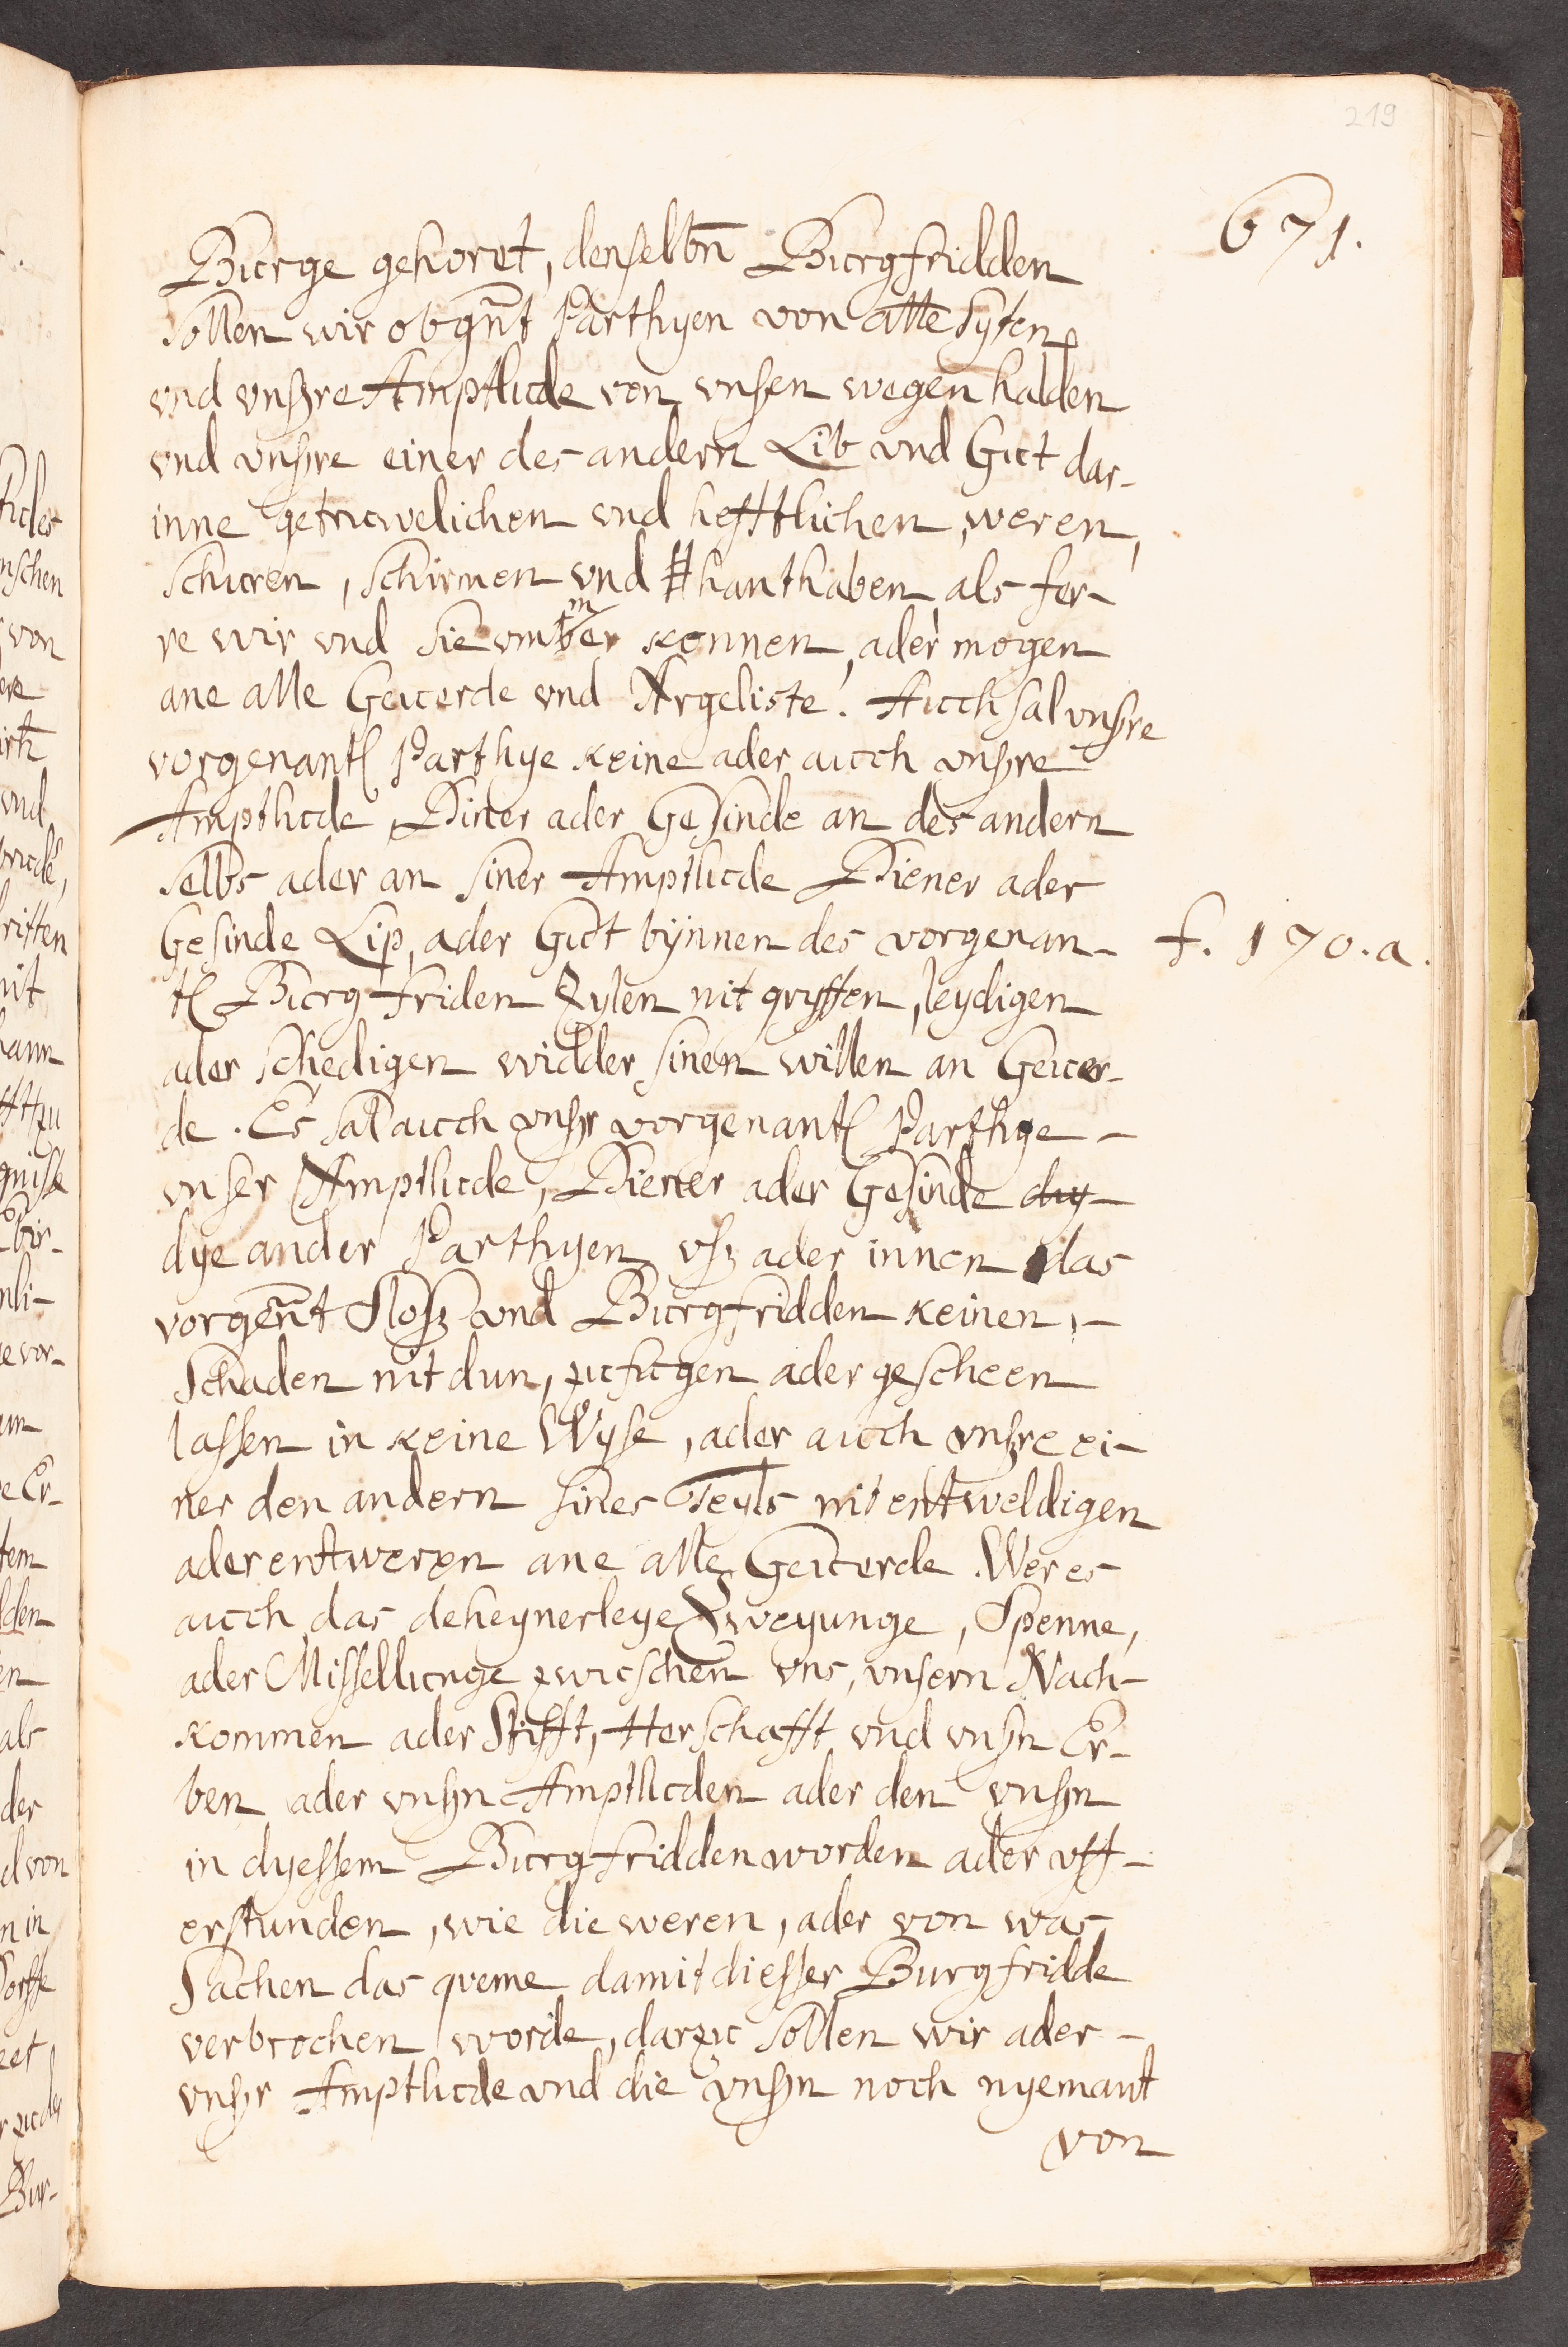 219
671.
Burge gehoret, denselbn̄ Burgfridden
sollen wir obgn̄t Parthyen von alle syten
vnd vnsre Amptlude von vnsen wegen halden
vnd vnsre einer des andern Lib vnd Gut dar-
inne getruwelichen vnd hefftlichen, weren,
schuren, schirmen vnd hanthaben als fer-
re wir vnd sie vmmer konnen, ader mogen
ane alle Geuerde vnd Argeliste. Auch sal vnsre
vorgenantl Parthye keine ader auch vnsre
Amptlude, Diner ader Gesinde an des andern
selbs ader an siner Amptlude Diener ader
Gesinde Lip, ader Gut bÿnnen des vorgenan-
f. 170.a.
tl Burgfriden Zylen nit gryffen, leydigen
ader schedigen widder sinen willen an Geuer-
de. Es sal auch vnsr vorgenantl Parthye -
vnser Amptlude, Diener ader Gesinde duy -
dye ander Parthyen vsz ader innen das
vorgen̄t Slosz vnd Burgfridden keinen, -
Schaden nit dun, zufugen ader gescheen
lassen in keine Wyse, ader auch vnsre ei-
ner den andern sines Teyls nit entweldigen
ader entweren ane alle Geuerde. Wer es
auch das deheynerleye Zweyunge, Spenne,
ader Missellunge zwuschen vns, vnsern Nach-
kommen ader Stifft, Herschafft vnd vnsn Er-
ben ader vnsn Amptluden ader den vnsn
in dyessem Burgfridden worden ader vff-
erstunden, wie die weren, ader von was
Sachen das queme damit diesser Burgfridde
verbrochen worde, darzu sollen wir ader -
vnsr Amptlude vnd die vnsn noch nyemant
von